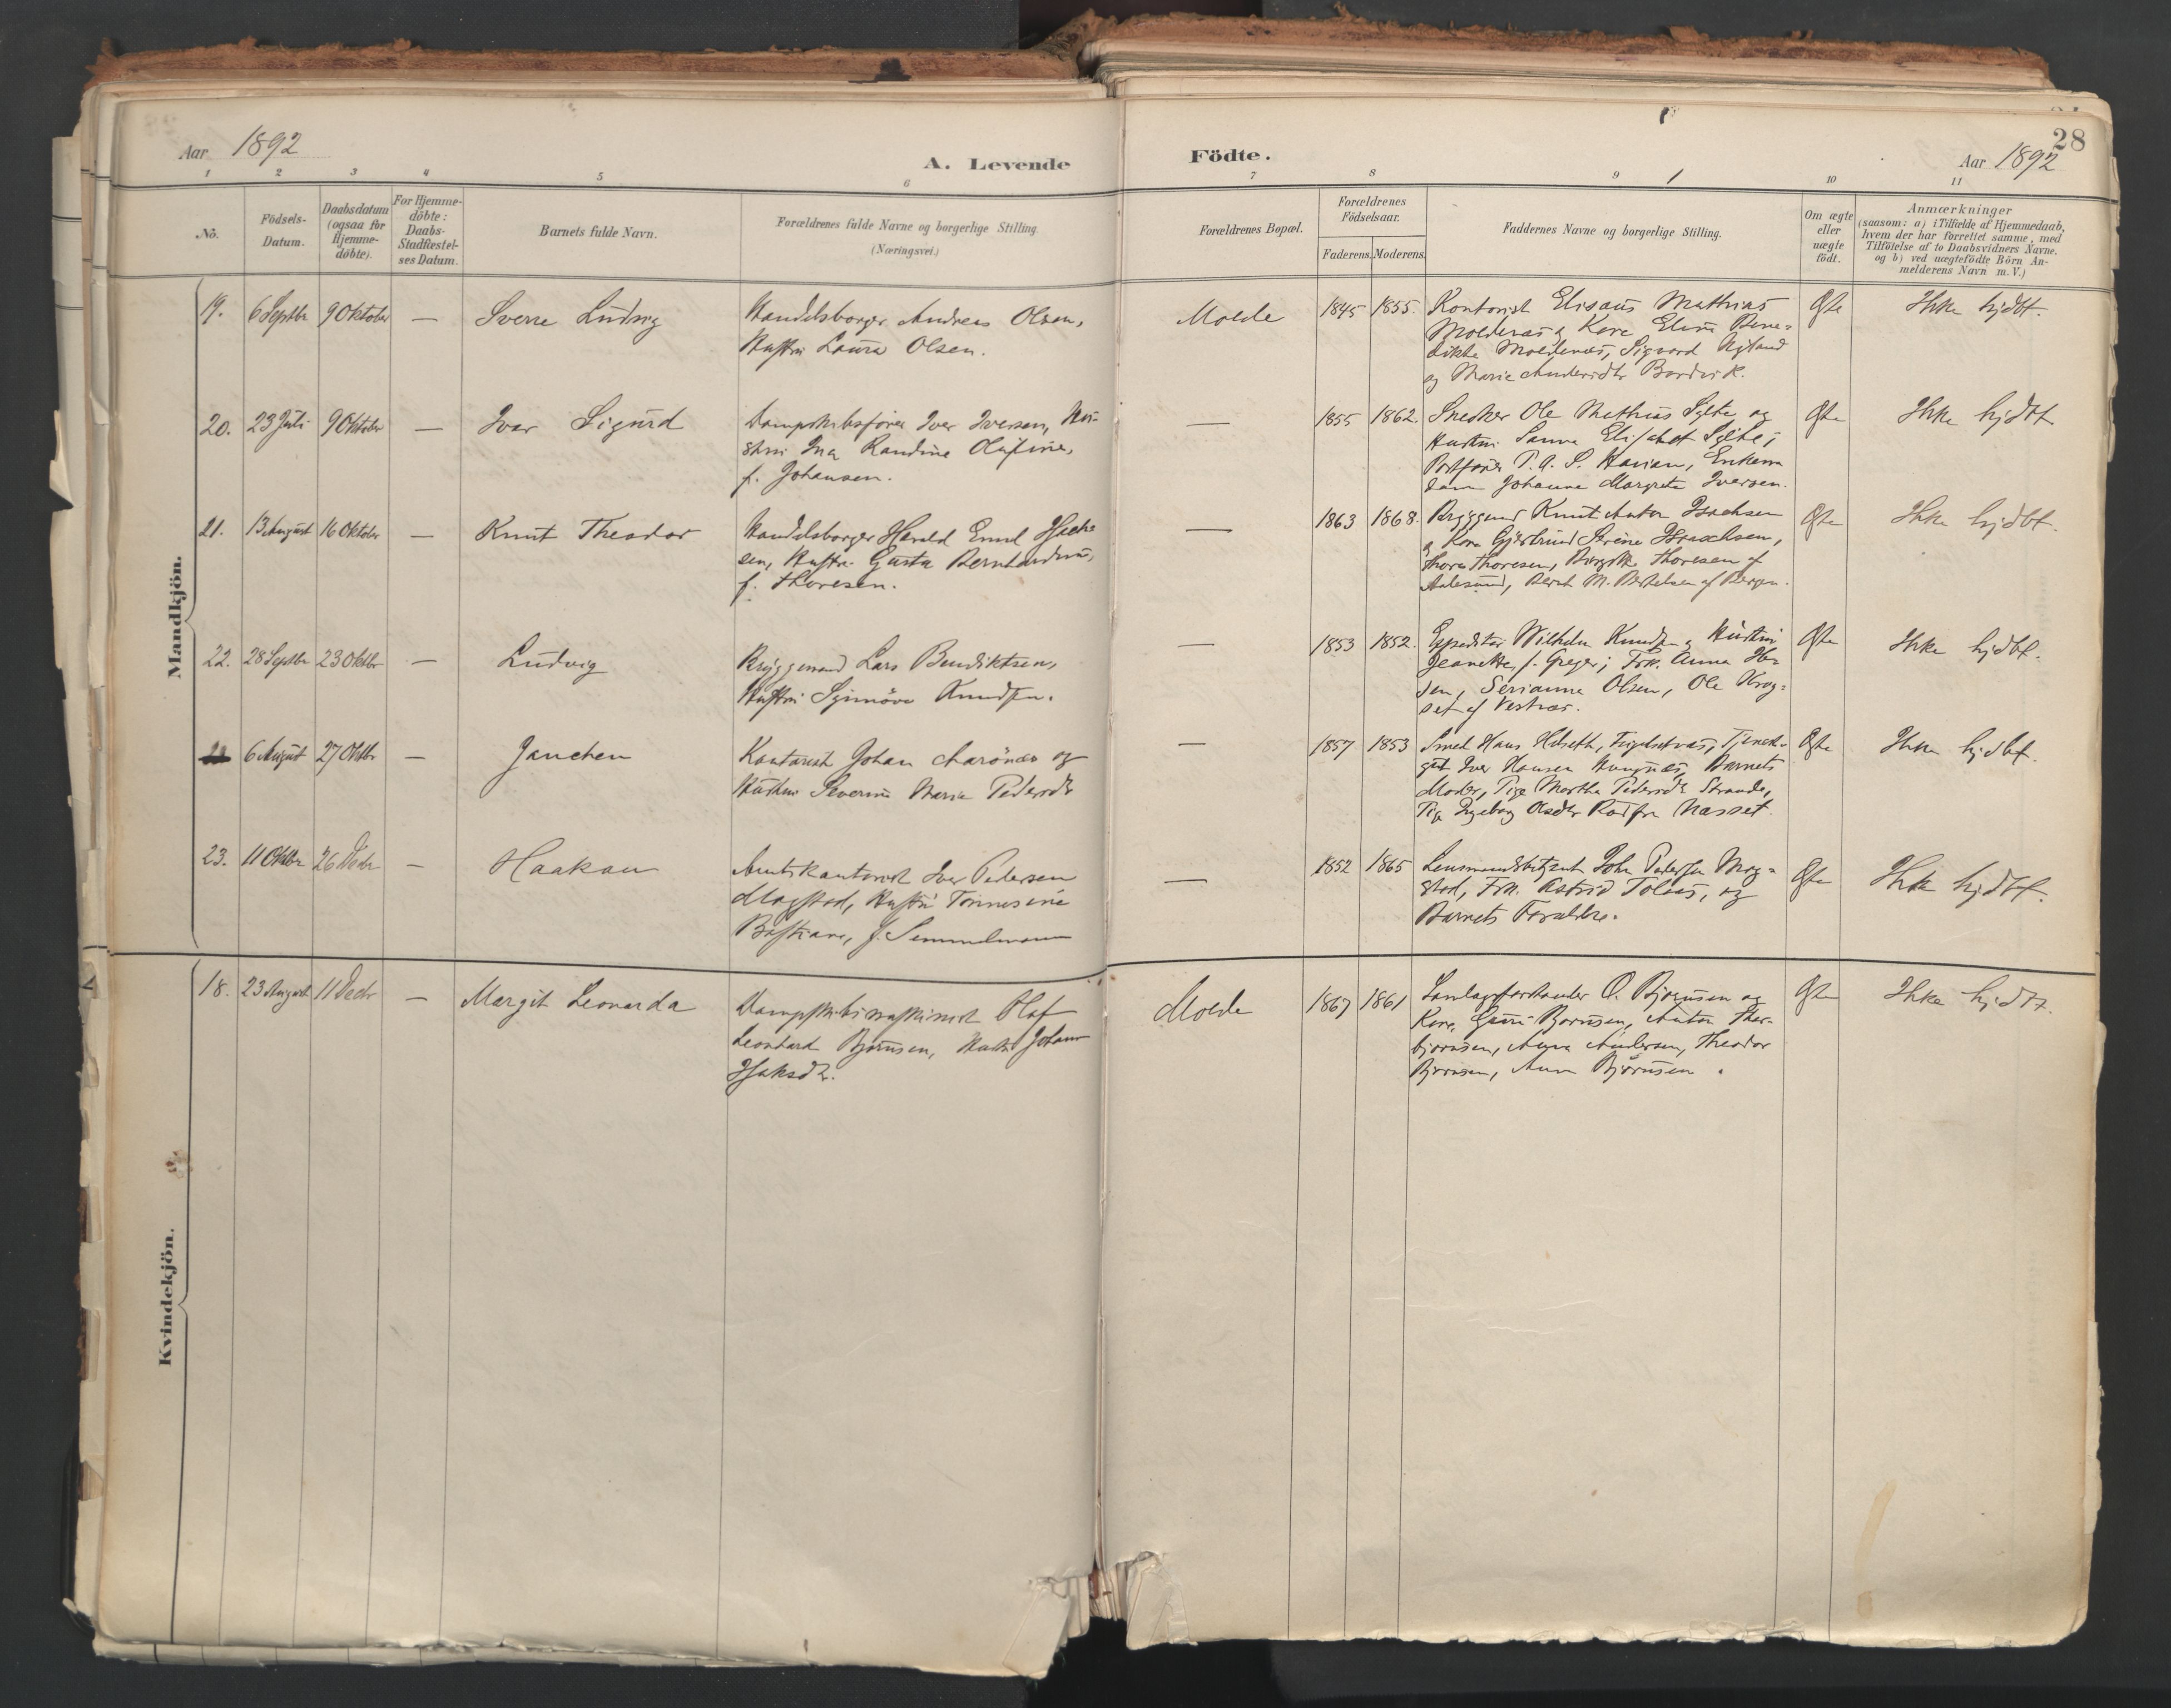 Aar 1892
A. Levende
Födte.
28
Aar 1892
1 2 3 4 5 6 7 8 9 10 11
No.
Födsels-
Datum.
Daabsdatum
(ogsaa for
Hjemme-
döbte).
For Hjemme-
döbte:
Daabs-
Stadfæstel-
ses Datum.
Barnets fulde Navn.
Forældrenes fulde Navne og borgerlige Stilling.
(Næringsvei.)
Forældrenes Bopæl.
Forældrenes
Födselsaar.
Faderens. Moderens.
Faddernes Navne og borgerlige Stilling.
Om ægte
eller
uægte
födt.
Anmærkninger
(saasom: a) i Tilfælde af Hjemmedaab,
hvem der har forrettet samme, med
Tilföielse af to Daabsvidners Navne.
og b) ved uægtefödte Börn An-
melderens Navn m. V.)
Mandkjön.
19. 6 Septbr 9 Oktober — Sverre Ludvig
Handelsborger Andreas Olsen,
Hustru Laura Olsen.
Molde 1845 1855.
Kontorist Elisæus Mathias
Moldenæs, Kone Elina Bene-
dikte Moldenæs, Sigvard
og Marie
Ægte Ikke hjdbt.
20. 23 Juli 9 Oktober — Ivar Sigurd
Dampskibsfører Iver Iversen, Hu-
stru Ina Randine Olufine,
f. Johansen.
— 1855 1862.
Snedker Ole Mathias Sylte og
Hustru Sanna Elisabet Sylte;
P. A. S. Enkema-
dam Johanne Margrete Iversen.
Ægte Ikke hjdbt
21. 13 August 16 Oktober — Knut Theodor
Handelsborger Harald Emil Isach-
sen, Hustru Gusta Bernhardine,
f. Thoresen.
— 1863 1868.
Bryggemd Knut Anton Isachsen
og Kone Gjertrud Serine Isachsen,
Thora Thoresen, Thoresen af
Aalesund, Bernt M. Bertelsen af Bergen.
Ægte Ikke hjdbt.
22. 28 Septbr 23 Oktbr — Ludvig
Bryggemand Lars Bendiktsen,
Hustru Synnöve Knudsen.
— 1853 1852.
Expeditör Wilhelm Knudsen og Hustru
Jeanette, f. Greger; Frk. Anna
sen, Serianna Olsen, Ole Krog-
set af Vestnæs.
Ægte Ikke hjdbt.
6 August 27 Oktbr — Janchen
Kontorist Johan Aarönæs og
Hustru Severine Marie Pedersdr
— 1857 1853
Smed Hans Helseth, Tjeneste-
gut Iver Hansen Barnets
Moder, Pige Martha Pedersdr Strande,
Pige Ingeborg Olsdtr fra Næsset.
Ægte Ikke hjdbt.
23. 11 Oktbr 26 Decbr — Haakon
Amtskontorist Iver Pedersen
Magstad, Hustru Tonnesine
Bastiane, f. Semmelmann
— 1852 1865
Lensmandsbetjent John Pedersen Mag-
stad, Frk. Astrid Tolaas, og
Barnets Forældre.
Ægte Ikke hjdbt.
Kvindekjön.
18. 23 August 11 Decbr — Margit Leonarda
Dampskibsmaskinist Olaf
Leonhard Bjørnsen, Hustru Johanne
Isaksdtr.
Molde 1867 1861
Samlagsforstander O. Bjørnsen og
Kone, Guri Bjørnsen, Anton Thor-
bjørnsen, Anna Andersen, Theodor
Bjørnsen, Anna Bjørnsen.
Ægte Ikke hjdbt.